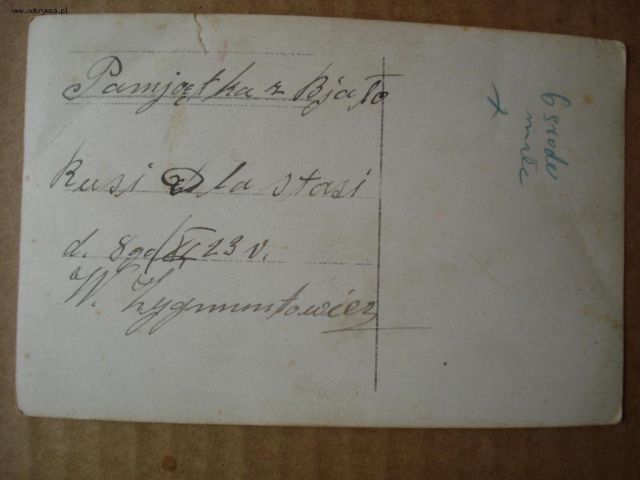 www.odkrywca.pl
Pamjętka z Bjało
Rusi Dla stasi
d. 8go/XI 23 r.
W. Zygmuntowicz
6 środ
małe